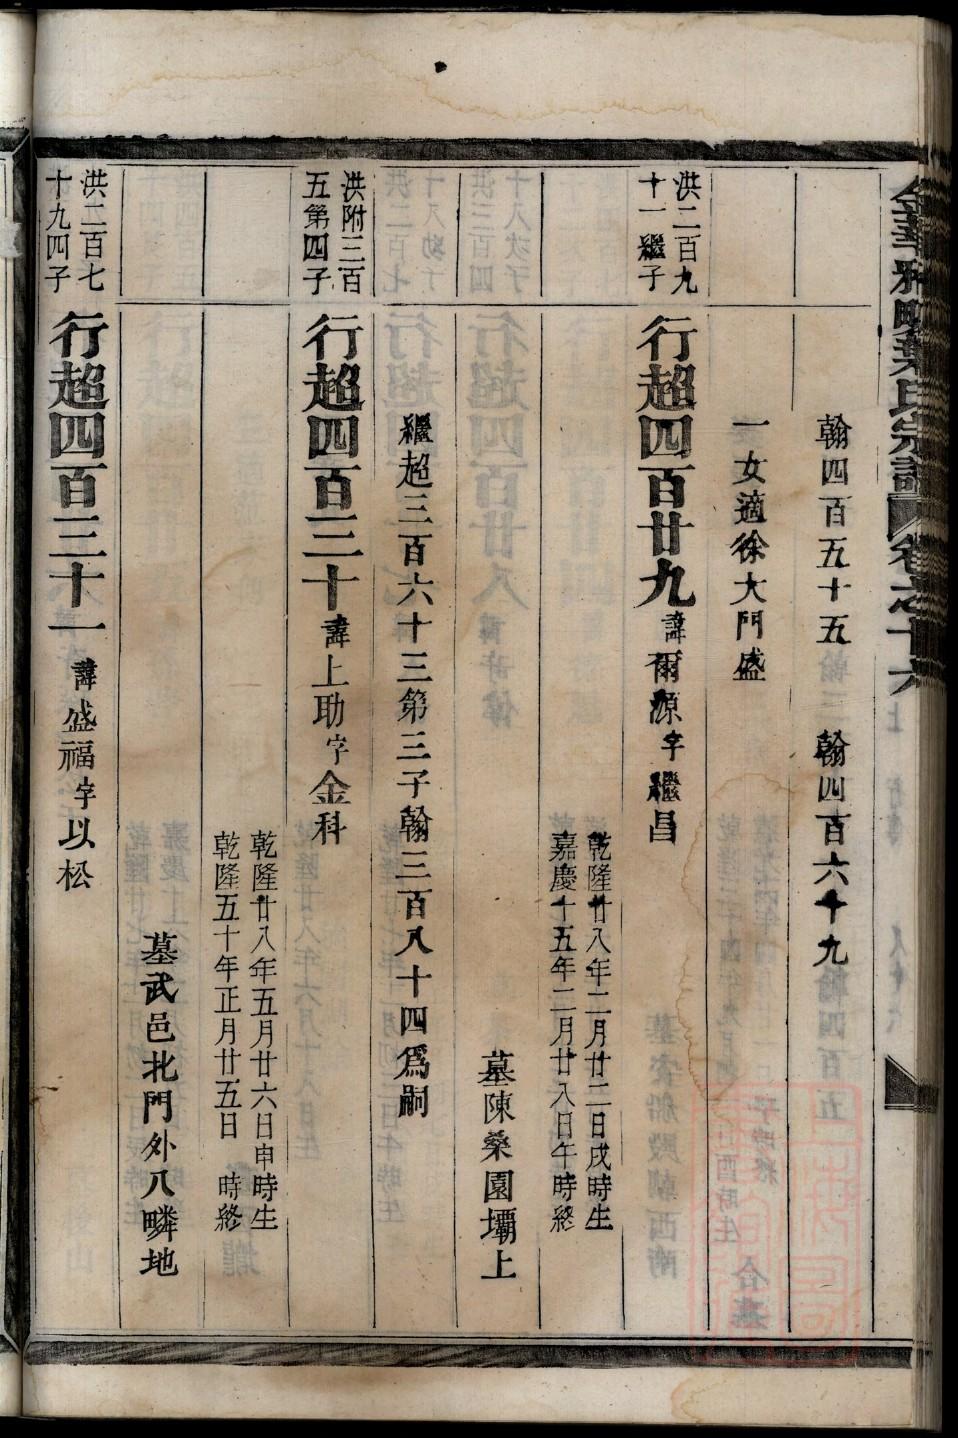 金華雅畈葉氏宗譜 卷之十六
翰四百五十五 翰四百六十九
一女適徐大門盛
洪二百九
十一繼子
行超四百廿九 諱爾源字繼昌
乾隆廿八年二月廿二日戌時生
嘉慶十五年二月廿八日午時終
墓陳桑園壩上
繼超三百六十三第三子翰三百八十四爲嗣
洪附三百
五第四子
行超四百三十 諱上助字金科
乾隆廿八年五月廿六日申時生
乾隆五十年正月廿五日 時終
墓武邑北門外八疄地
洪二百七
十九四子
行超四百三十一 諱盛福字以松